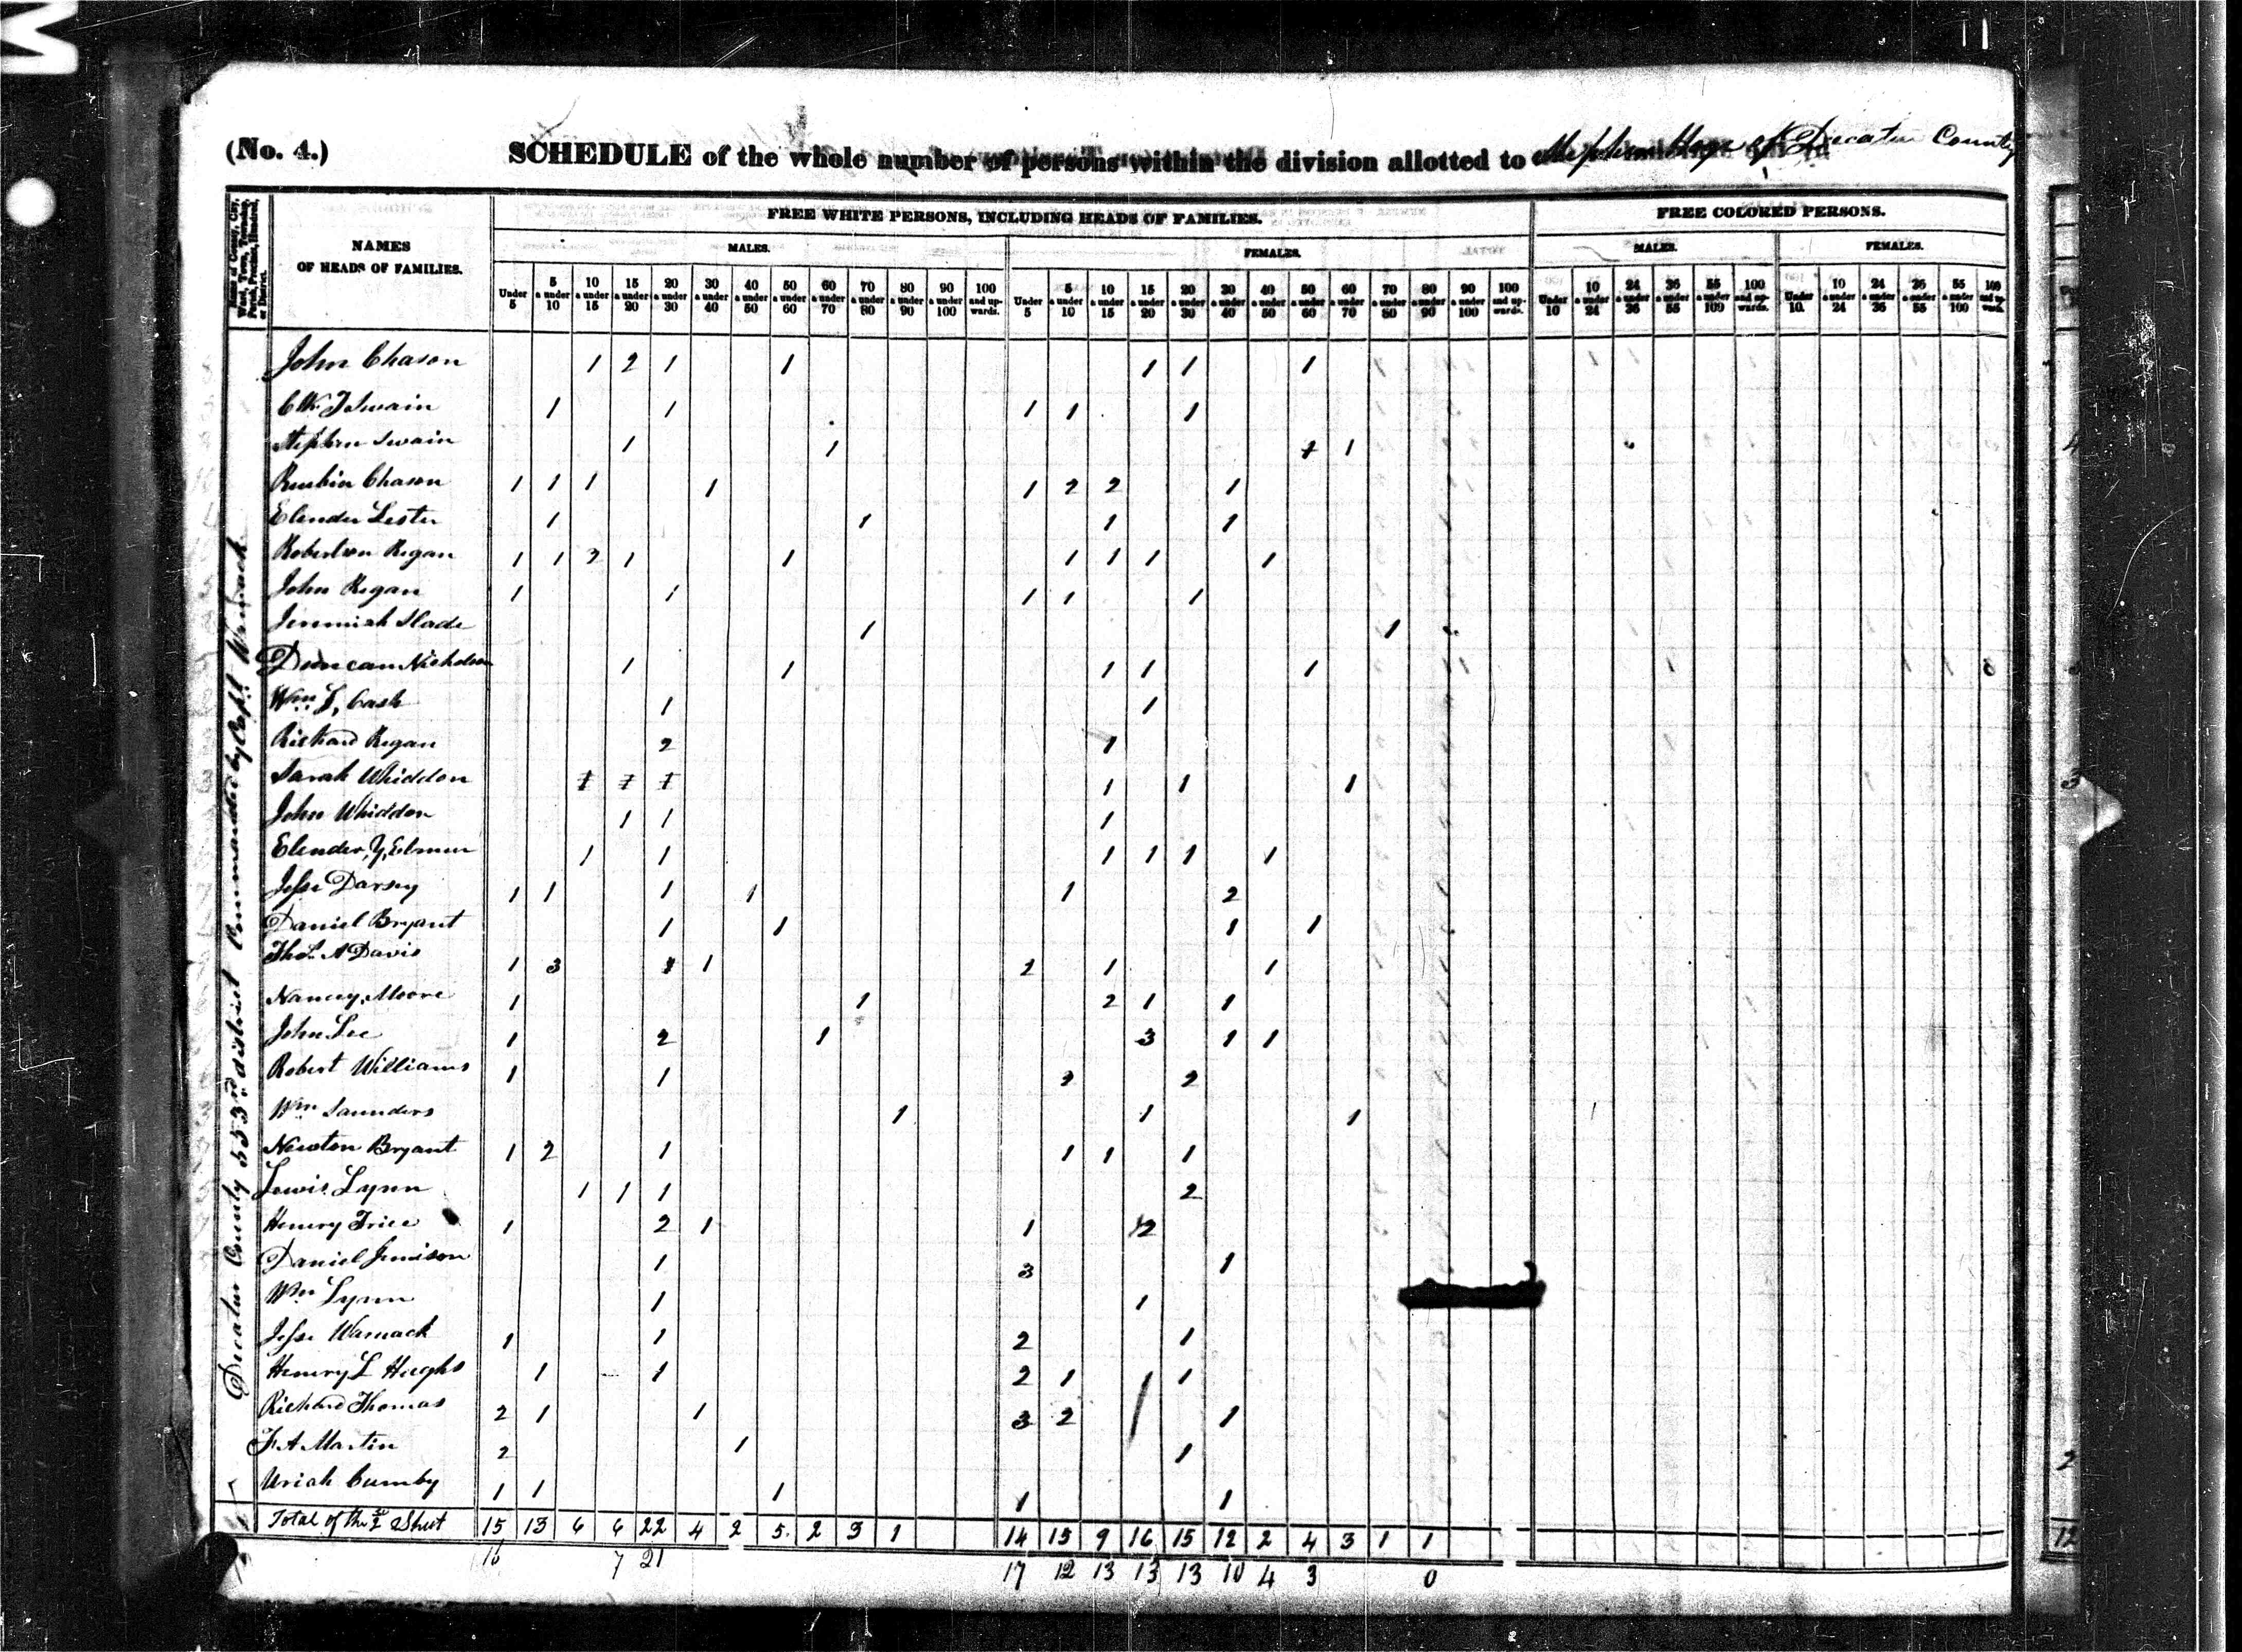 (No. 4.)
SCHEDULE of the whole number of persons within the division allotted to Stephen Hoge of Decatur County
Name of County, City, Ward, Town, Township, Parish, Precinct, Hundred, or District.
NAMES OF HEADS OF FAMILIES.
FREE WHITE PERSONS, INCLUDING HEADS OF FAMILIES.
FREE COLORED PERSONS.
MALES. FEMALES. MALES. FEMALES.
Under 5 | 5 & under 10 | 10 & under 15 | 15 & under 20 | 20 & under 30 | 30 & under 40 | 40 & under 50 | 50 & under 60 | 60 & under 70 | 70 & under 80 | 80 & under 90 | 90 & under 100 | 100 and upwards. | Under 5 | 5 & under 10 | 10 & under 15 | 15 & under 20 | 20 & under 30 | 30 & under 40 | 40 & under 50 | 50 & under 60 | 60 & under 70 | 70 & under 80 | 80 & under 90 | 90 & under 100 | 100 and upwards. | Under 10 | 10 & under 24 | 24 & under 36 | 36 & under 55 | 55 & under 100 | 100 and upwards. | Under 10. | 10 & under 24 | 24 & under 36 | 36 & under 55 | 55 & under 100 | 100 and upwards.
Decatur County 553rd district Commanded by Capt. Warnack
John Chason 1 2 1 1 1 1 1
Swain 1 1 1 1 1
Stephen Swain 1 1 1 1
Reubin Chason 1 1 1 1 1 2 2 1
Elender Lester 1 1 1 1
Robertson Regan 1 1 2 1 1 1 1 1 1
John Regan 1 1 1 1 1
Jeremiah Slade 1 1
Duncan Nicholson 1 1 1 1 1
Wm L, Cash 1 1
Richard Regan 2 1
Sarah Whiddon 1 1 1 1 1 1
John Whiddon 1 1 1
Elender, Y, 1 1 1 1 1 1
Jesse Darsey 1 1 1 1 1 2
Daniel Bryant 1 1 1 1
Thos. A Davis 1 3 1 1 2 1 1
Nancy, Moore 1 1 2 1 1
John Lee 1 2 1 3 1 1
Robert Williams 1 1 2 2
Wm Saunders 1 1 1
Newton Bryant 1 2 1 1 1 1
Lewis Lynn 1 1 1 2
Henry Trice 1 2 1 1 2
Daniel Jemison 1 3 1
Wm Lynn 1 1
Jesse Warnack 1 1 2 1
Henry L Hughs 1 1 2 1 1
Richard Thomas 2 1 1 3 2 1
F. A Martin 2 1 1
Uriah Cumby 1 1 1 1 1
Total of the 2 Sheet 15 13 6 6 22 4 2 5. 2 3 1 14 15 9 16 15 12 2 4 3 1 1
16 7 21 17 12 13 13 13 10 4 3 0